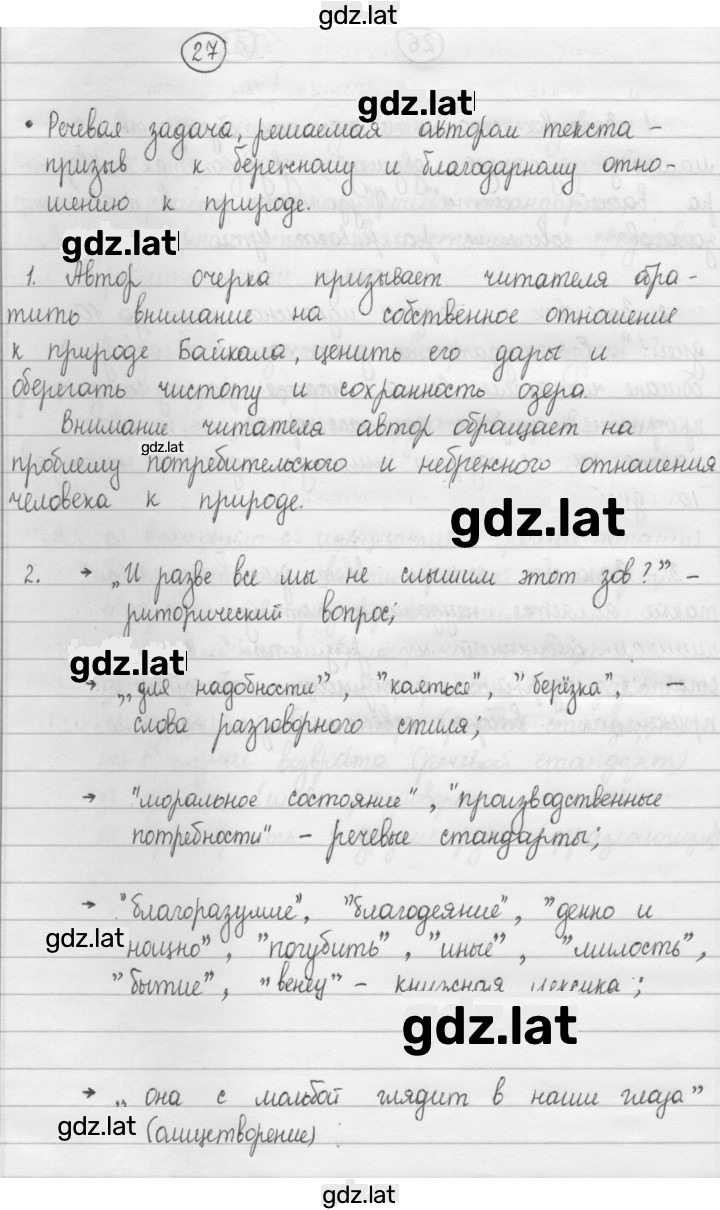 gdz.lat
27
gdz.lat
• Речевая задача, решаемая автором текста –
призыв к бережному и благодарному отно-
шению к природе.
gdz.lat
1. Автор очерка призывает читателя обра-
тить внимание на собственное отношение
к природе Байкала, ценить его дары и
оберегать чистоту и сохранность озера.
Внимание читателя автор обращает на
gdz.lat
проблему потребительского и небрежного отношения
человека к природе.
gdz.lat
2. → „И разве все мы не слышим этот зов?” –
риторический вопрос;
gdz.lat
→ „для надобности”, "каяться", "берёзка", –
слова разговорного стиля;
→ "моральное состояние", "производственные
потребности" – речевые стандарты;
→ "благоразумие", "благодеяние", "денно и
gdz.lat
нощно", "погубить", "иные", "милость",
"бытие", "венец" – книжная лексика;
gdz.lat
→ „она с мольбой глядит в наши глаза”
gdz.lat
(олицетворение)
gdz.lat